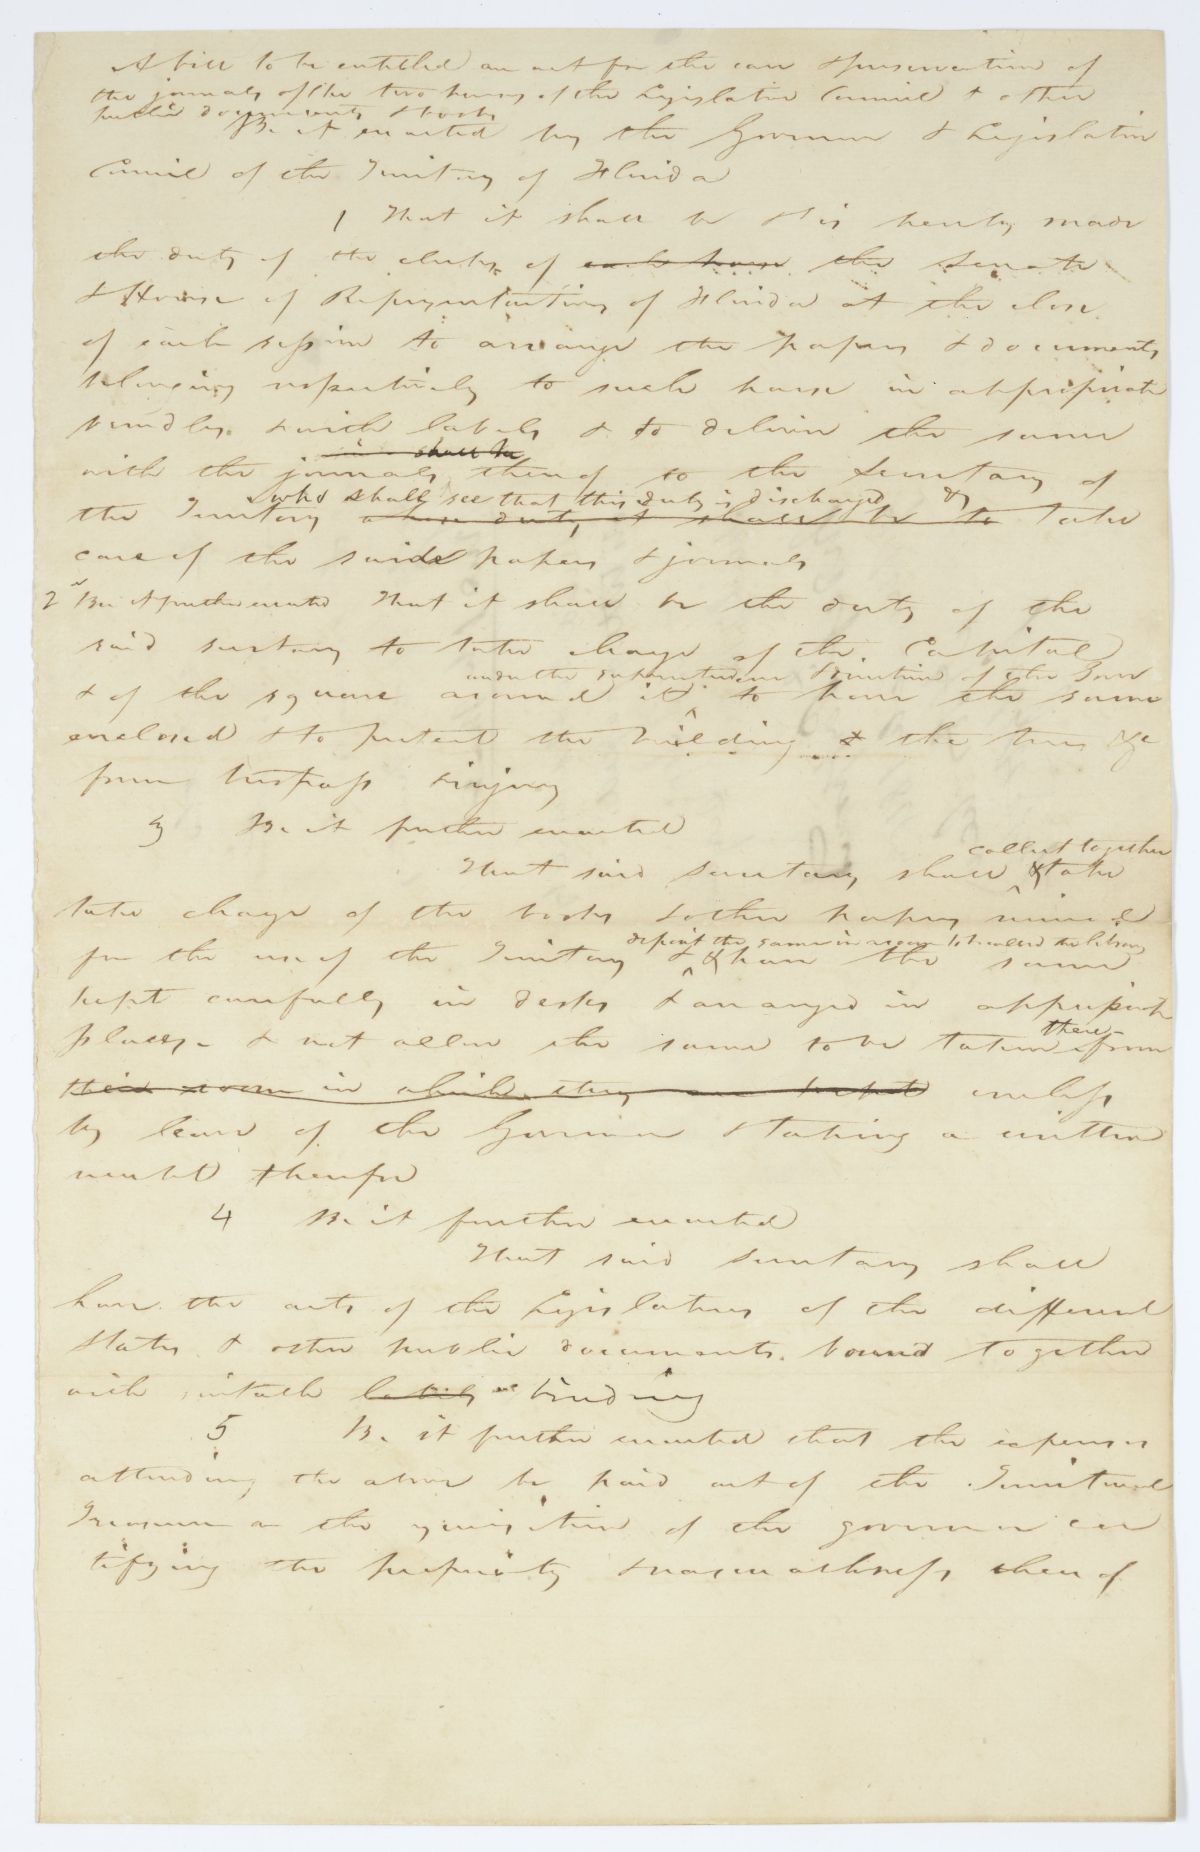 A bill to be entitled an act for the care & preservation of
the journals of the two houses of the Legislative Council & other
public documents & books
Be it enacted by the Governor & Legislative
Council of the Territory of Florida
1 That it shall be & it is hereby made
the duty of the clerks of each house the Senate
& House of Representatives of Florida at the close
of each session to arrange the papers & documents
belonging respectively to such house in appropriate
bundles & with labels & to deliver the same
shall be
with the journals thereof to the Secretary of
who shall see that this duty is discharged &
the Territory whose duty it shall be to take
care of the said papers & journals
2 Be it further enacted That it shall be the duty of the
said secretary to take charge of the Capitol
under the superintendence & direction of the Gov
& of the square around it to have the same
enclosed & to protect the building & the trees &c
from trespass & injury
3 Be it further enacted
collect together
That said Secretary shall & take
take charge of the books & other papers
deposit the same in room to be called the library
for the use of the Territory & & have the same
kept carefully in desks & arranged in appropriate
places & not allow the same to be taken there-from
their room in which they are kept unless
by leave of the Governor & taking a written
receipt therefor
4 Be it further enacted
That said Secretary shall
have the acts of the Legislatures of the different
States & other public documents bound together
with suitable labels binding
5 Be it further enacted that the expenses
attending the above be paid out of the Territorial
Treasury on the requisition of the governor cer
tifying the propriety & reasonableness thereof